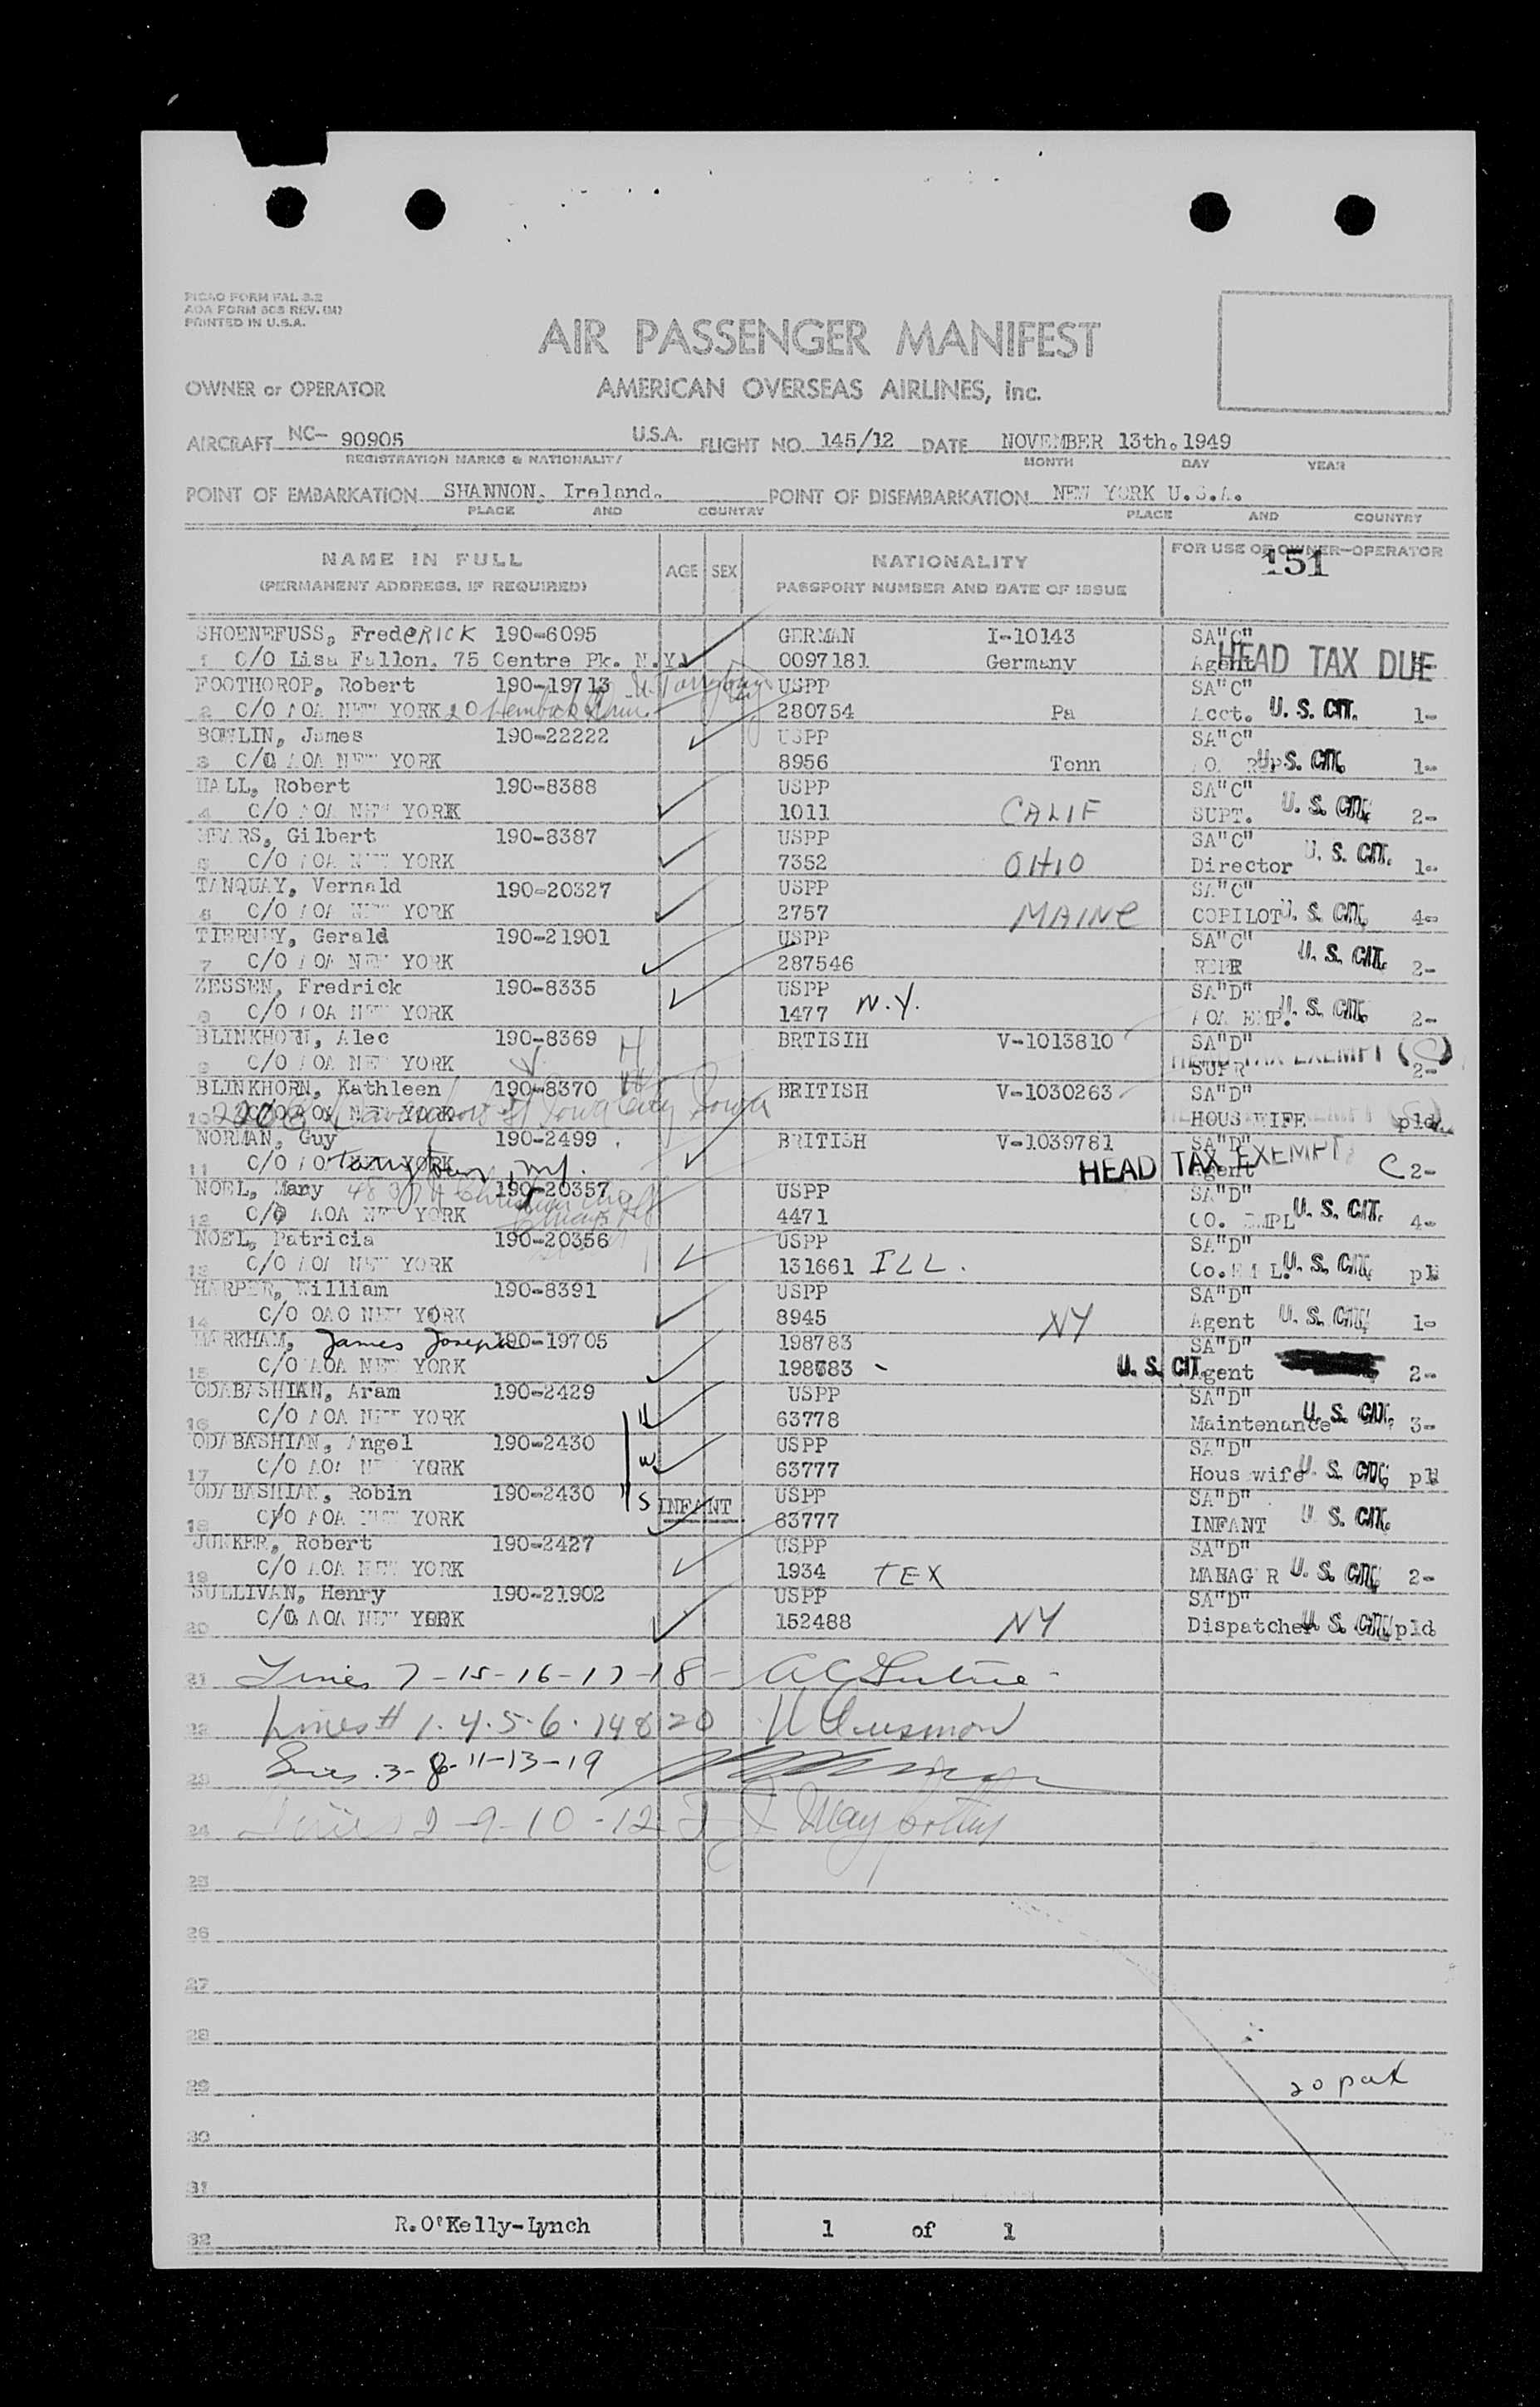 PICAO FORM FAL 3.2
AOA FORM 608 REV. (M)
PRINTED IN U.S.A.
AIR PASSENGER MANIFEST
OWNER or OPERATOR AMERICAN OVERSEAS AIRLINES, Inc.
AIRCRAFT NC- 90905 U.S.A. FLIGHT NO. 145/12 DATE NOVEMBER 13th. 1949
REGISTRATION MARKS & NATIONALITY MONTH DAY YEAR
POINT OF EMBARKATION SHANNON, Ireland. POINT OF DISEMBARKATION NEW YORK U.S.A.
PLACE AND COUNTRY PLACE AND COUNTRY
NAME IN FULL AGE SEX NATIONALITY FOR USE OF OWNER-OPERATOR
(PERMANENT ADDRESS, IF REQUIRED) PASSPORT NUMBER AND DATE OF ISSUE 151
SHOENEFUSS, FredERICK 190-6095 GERMAN I-10143 SA"C"
1 C/O Lisa Fallon. 75 Centre Pk. N.Y. 0097181 Germany Agent HEAD TAX DUE
FOOTHOROP, Robert 190-19713 USPP SA"C"
2 C/O AOA NEW YORK 20 USPP 280754 Pa Acct. U. S. CIT. 1-
BOWLIN, James 190-22222 USPP SA"C"
3 C/O AOA NEW YORK 8956 Tenn U. S. CIT. 1-
HALL, Robert 190-8388 USPP SA"C"
4 C/O AOA NEW YORK 1011 CALIF SUPT. U. S. CIT. 2-
MEARS, Gilbert 190-8387 USPP SA"C"
5 C/O AOA NEW YORK 7352 OHIO Director U. S. CIT. 1-
TANQUAY, Vernald 190-20327 USPP SA"C"
6 C/O AOA NEW YORK 2757 MAINE COPILOT U. S. CIT. 4-
TIERNEY, Gerald 190-21901 USPP SA"C"
7 C/O AOA NEW YORK 287546 U. S. CIT. 2-
ZESSEN, Fredrick 190-8335 USPP SA"D"
8 C/O AOA NEW YORK 1477 N.Y. AOA EMP. U. S. CIT. 2-
BLINKHORN, Alec 190-8369 H BRTISIH V-1013810 SA"D"
9 C/O AOA NEW YORK HEAD TAX EXEMPT (C) SUPR 2-
BLINKHORN, Kathleen 190-8370 W BRITISH V-1030263 SA"D"
10 C/O AOA NEW YORK Iowa City Iowa HOUSWIFE pld
NORMAN, Guy 190-2499 BRITISH V-1039781 SA"D"
11 C/O AOA NEW YORK HEAD TAX EXEMPT Agent C 2-
NOEL, Mary 190-20357 USPP SA"D"
12 C/O AOA NEW YORK 4471 CO. EMPL U. S. CIT. 4-
NOEL, Patricia 190-20356 USPP SA"D"
13 C/O AOA NEW YORK 131661 ILL. U. S. CIT.
HARPER, William 190-8391 USPP SA"D"
14 C/O OAO NEW YORK 8945 NY Agent U. S. CIT. 1-
MARKHAM, James Joseph 190-19705 198783 SA"D"
15 C/O AOA NEW YORK 198783 - U. S. CIT. Agent 2-
ODABASHIAN, Aram 190-2429 USPP SA"D"
16 C/O AOA NEW YORK H 63778 Maintenance U. S. CIT. 3-
ODABASHIAN, Angel 190-2430 USPP SA"D"
17 C/O AOA NEW YORK W 63777 Houswife U. S. CIT.
ODABASHIAN, Robin 190-2430 S INFANT USPP SA"D"
18 C/O AOA NEW YORK 63777 INFANT U. S. CIT.
JUNKER, Robert 190-2427 USPP SA"D"
19 C/O AOA NEW YORK 1934 TEX MANAG R U. S. CIT. 2-
SULLIVAN, Henry 190-21902 USPP SA"D"
20 C/O AOA NEW YORK 152488 NY Dispatcher U. S. CIT. pld
21 Lines 7-15-16-17-18-
22 Lines # 1.4.5.6.14&20
23 Lines .3-8-11-13-19
24 Lines 2-9-10-12
25
26
27
28
29 20 pax
30
31
R.O'Kelly-Lynch 1 of 1
32